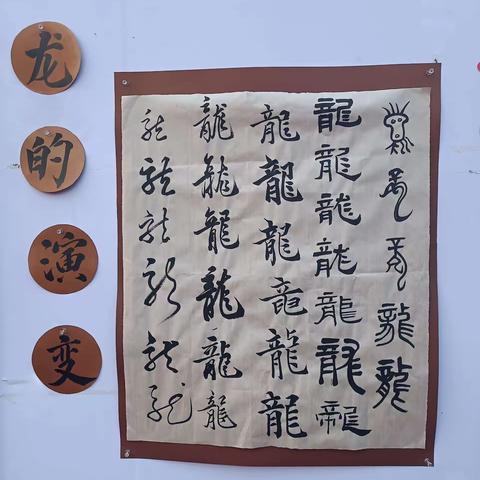 龙的演变
龍龍龍龍龍
龍龍龍龍龍龍龍
龍龍龍龍龍龍
龍龍龍龍龍龍
龍龍龍龍龍龍